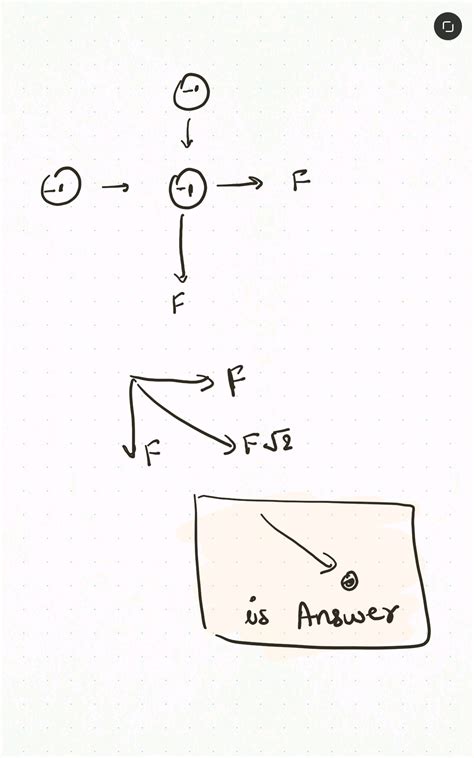 -1
-1 -1 F
F
F
F F√2
is Answer